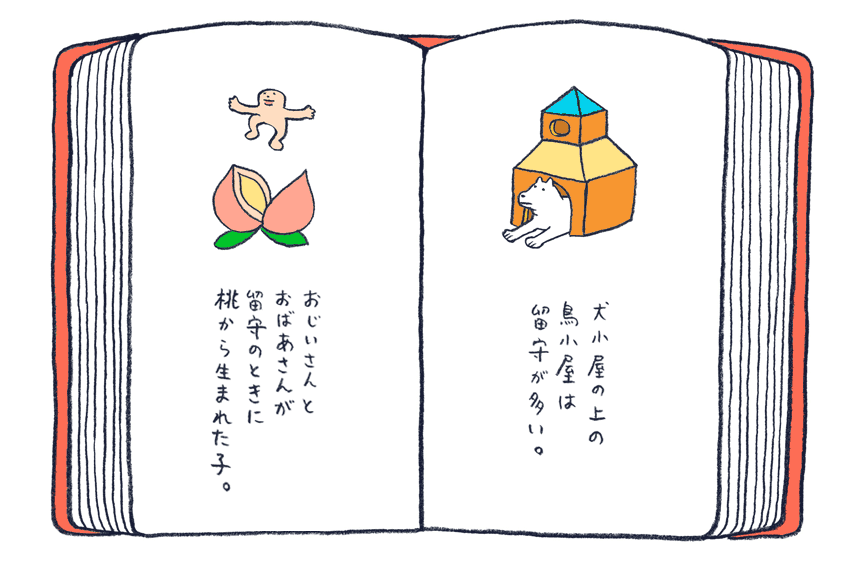 犬小屋の上の
鳥小屋は
留守が多い。
おじいさんと
おばあさんが
留守のときに
桃から生まれた子。